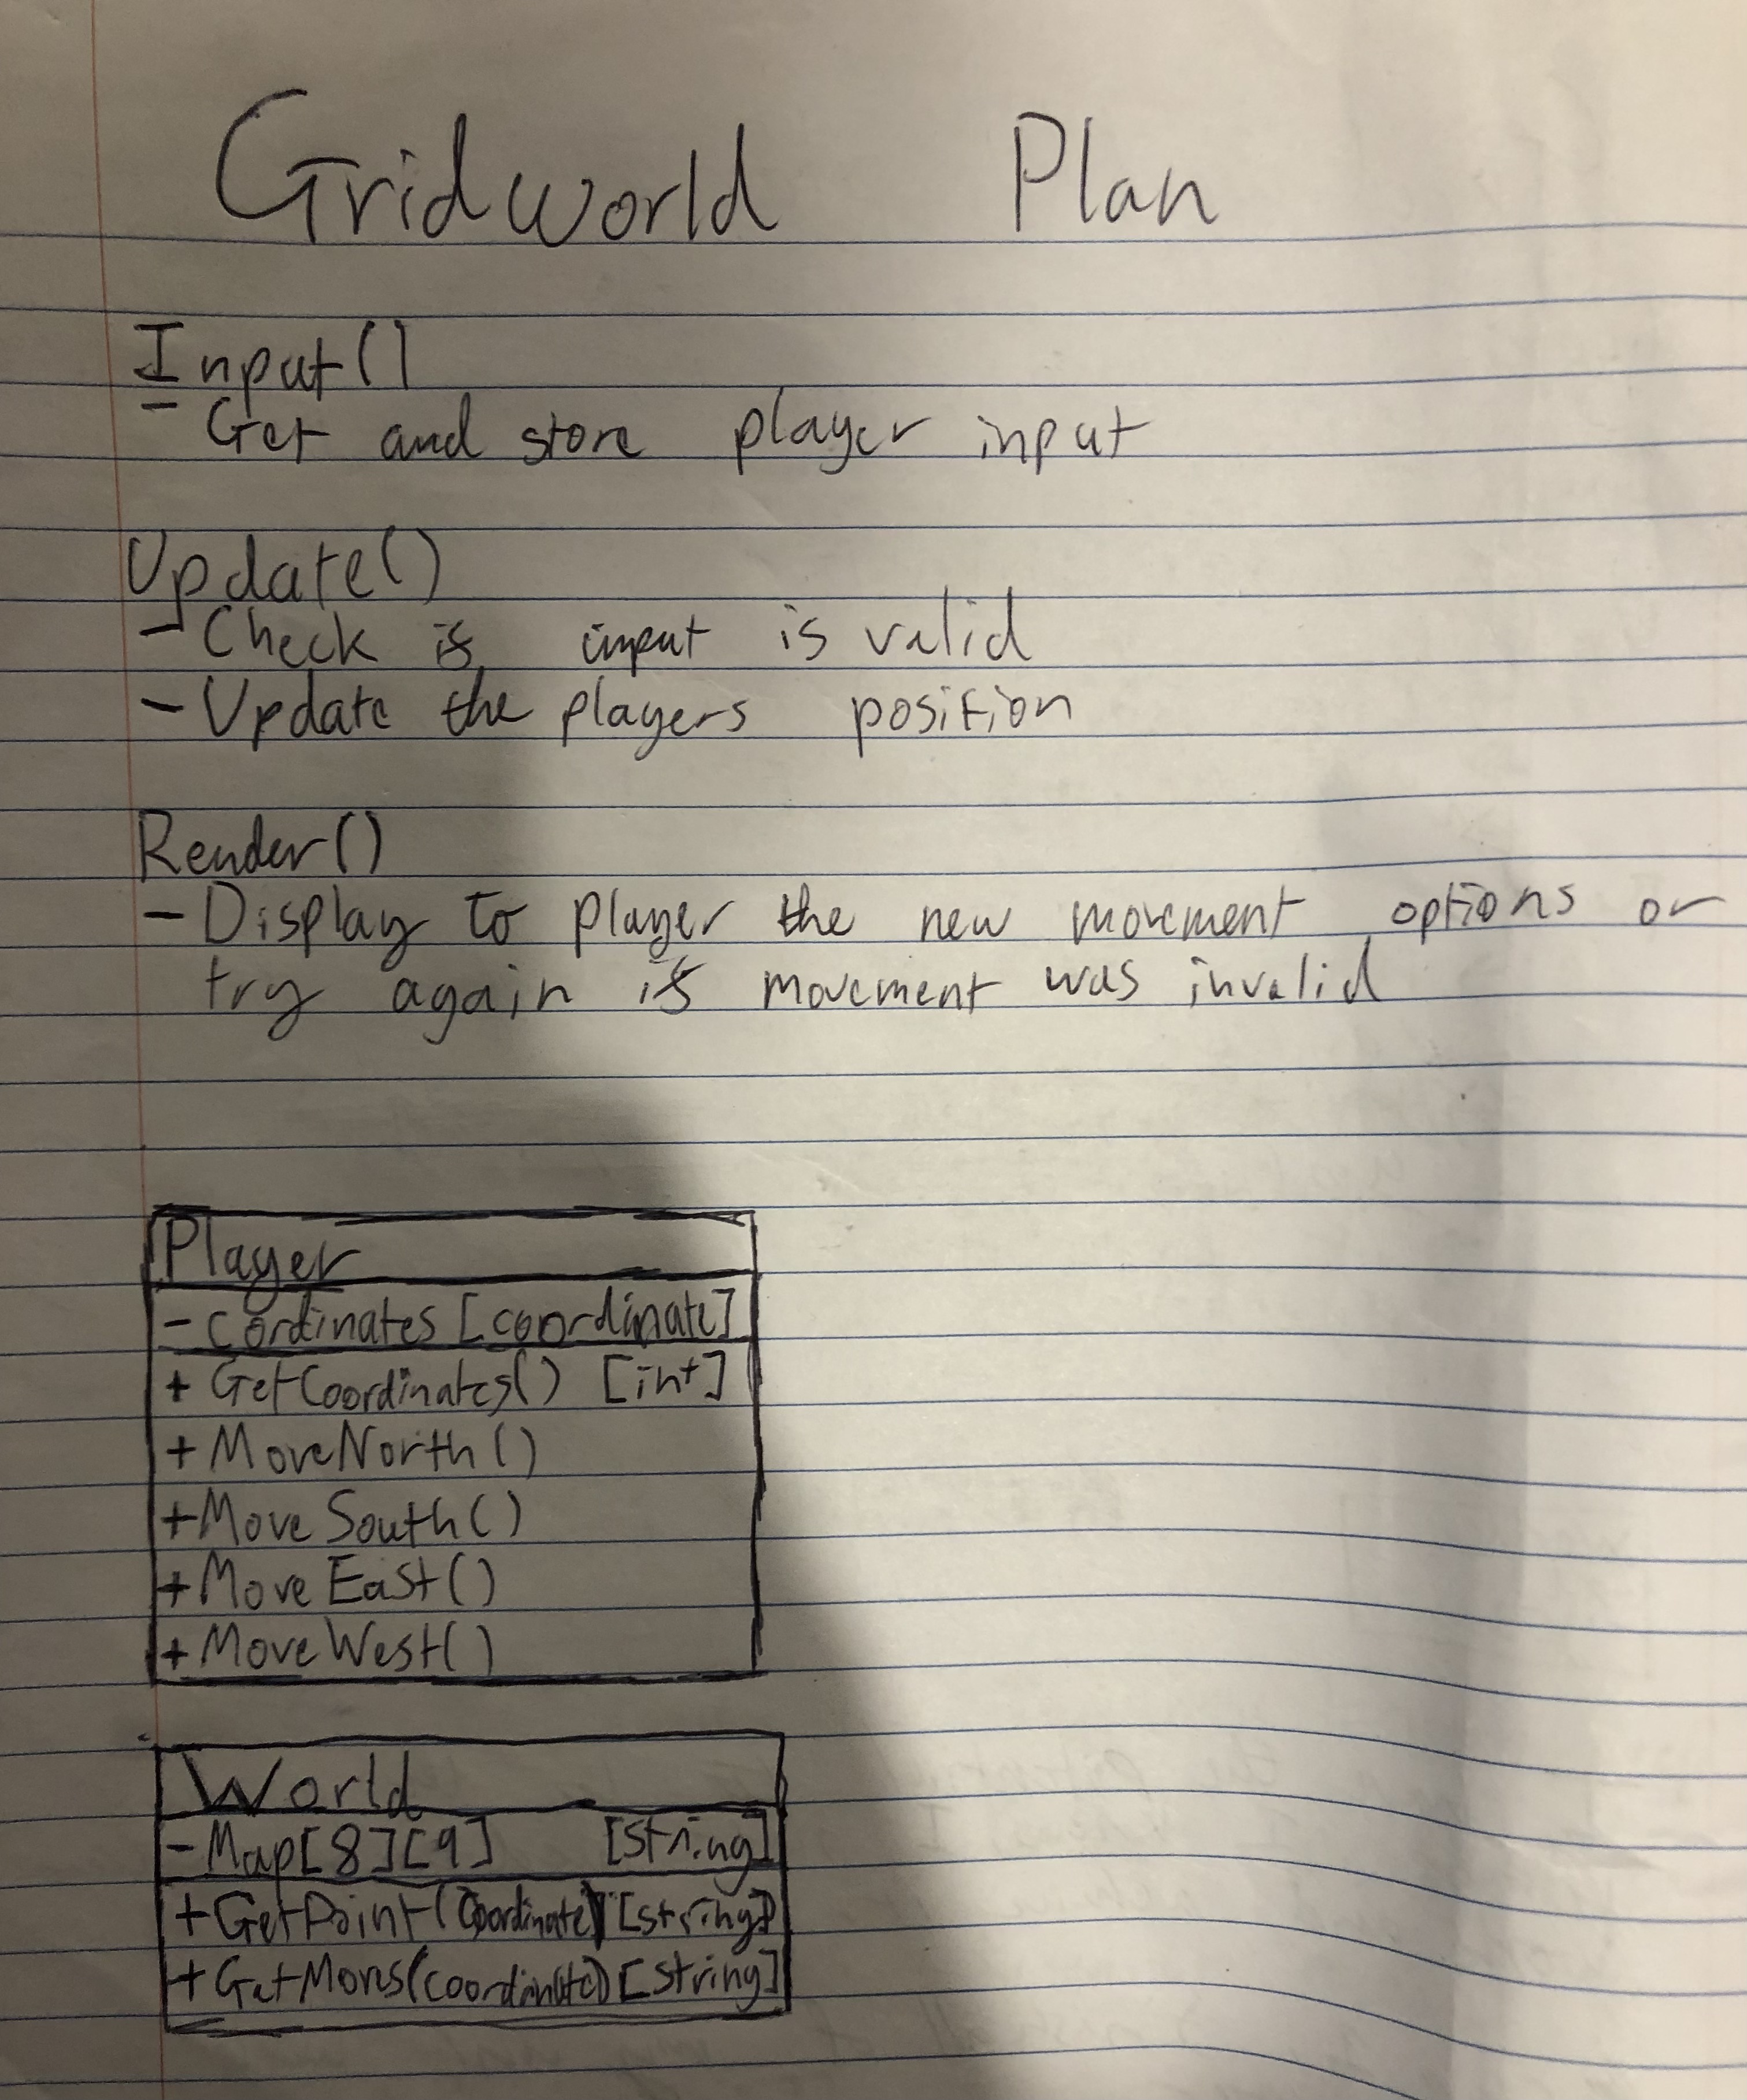 Gridworld Plan
Input()
- Get and store player input
Update()
- Check if input is valid
- Update the players position
Render()
- Display to player the new movement options or
try again if movement was invalid
Player
- Cordinates [coordinate]
+ GetCoordinates() [int]
+ MoveNorth()
+ Move South()
+ Move East()
+ Move West()
World
- Map[8][9] [string]
+ GetPoint(Coordinate) [string]
+ GetMoves(coordinate) [string]